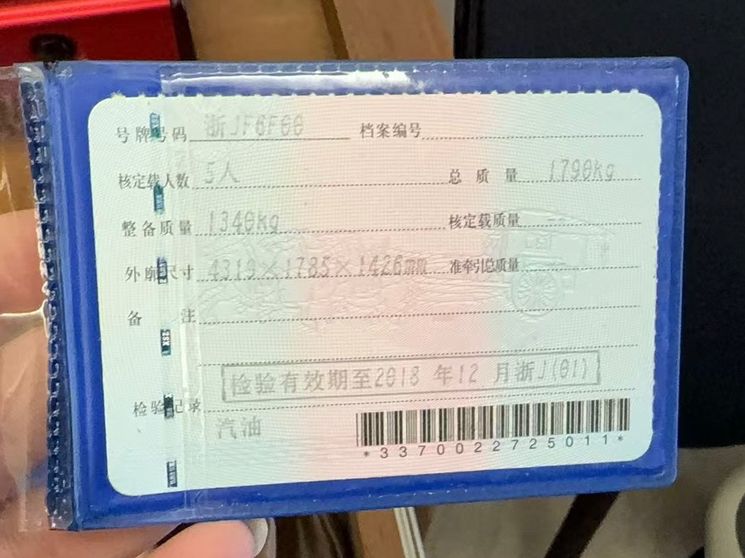 号牌号码 浙JF6F60 档案编号
核定载人数 5人 总质量 1790kg
整备质量 1340kg 核定载质量
外廓尺寸 4319×1785×1426mm 准牵引总质量
备注
检验有效期至2018年12月浙J(01)
检验记录
汽油
*3370022725011*